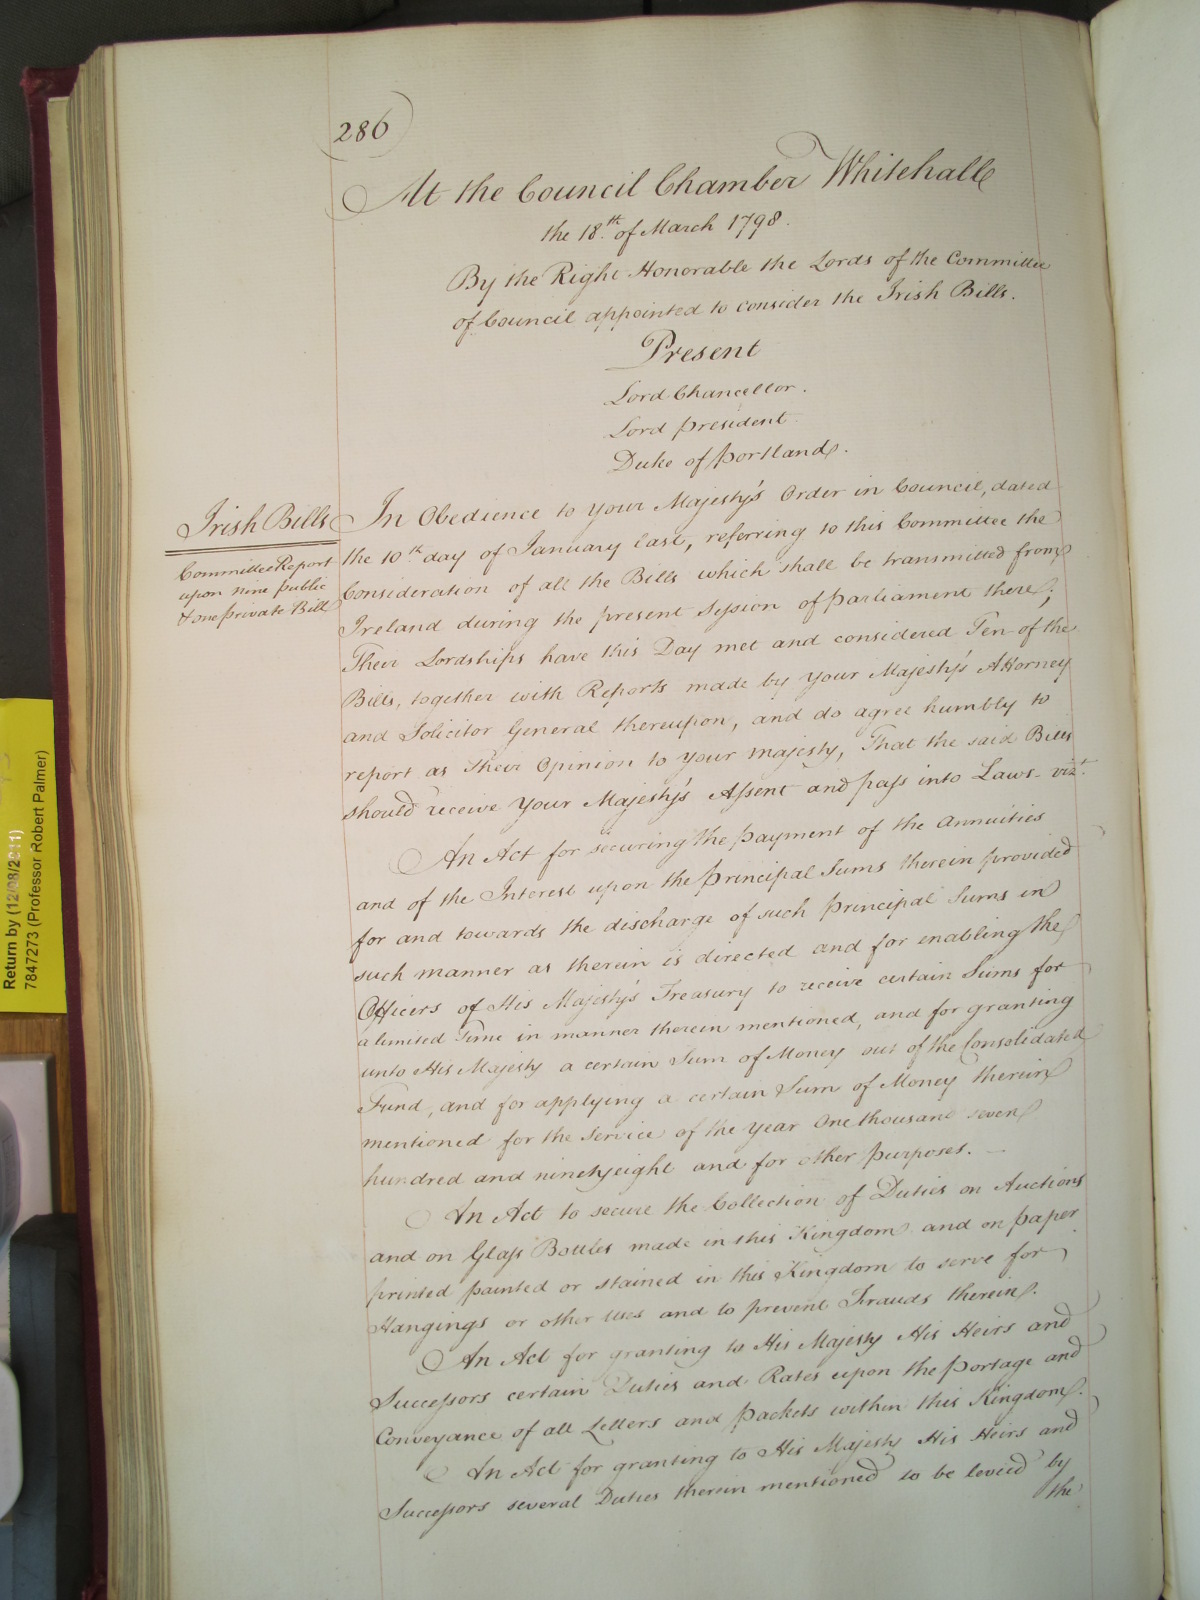 286
At the Council Chamber Whitehall
the 18.th of March 1798.
By the Right Honorable the Lords of the Committee
of Council appointed to consider the Irish Bills.
Present
Lord Chancellor.
Lord President
Duke of Portland.
Irish Bills
Committee Report
upon nine public
& one private Bill
In Obedience to Your Majesty's Order in Council, dated
the 10.th day of January last, referring to this Committee the
Consideration of all the Bills which shall be transmitted from
Ireland during the present Session of Parliament there;
Their Lordships have this Day met and considered Ten of the
Bills, together with Reports made by Your Majesty's Attorney
and Solicitor General thereupon, and do agree humbly to
report as Their Opinion to Your Majesty, That the said Bills
should receive Your Majesty's Assent and pass into Laws - vizt.
An Act for securing the payment of the Annuities
and of the Interest upon the Principal Sums therein provided
for and towards the discharge of such Principal Sums in
such manner as therein is directed and for enabling the
Officers of His Majesty's Treasury to receive certain Sums for
a limited Time in manner therein mentioned, and for granting
unto His Majesty a certain Sum of Money out of the Consolidated
Fund, and for applying a certain Sum of Money therein
mentioned for the Service of the Year One thousand seven
hundred and ninety eight and for other Purposes. -
An Act to secure the Collection of Duties on Auctions
and on Glass Bottles made in this Kingdom and on paper
printed painted or stained in this Kingdom to serve for
Hangings or other uses and to prevent Frauds therein.
An Act for granting to His Majesty His Heirs and
Successors certain Duties and Rates upon the Portage and
Conveyance of all Letters and Packets within this Kingdom.
An Act for granting to His Majesty His Heirs and
Successors several Duties therein mentioned to be levied by
the
Return by (12/08/2011)
7847273 (Professor Robert Palmer)